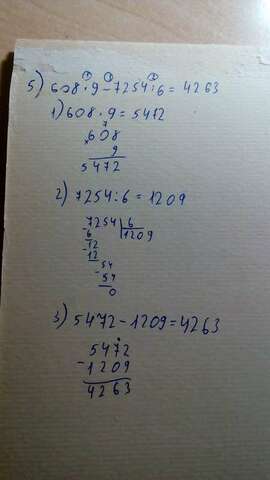 5) 608 · 9 - 7254 : 6 = 4263
1) 608 · 9 = 5472
7
608
× 9
5472
2) 7254 : 6 = 1209
7254 | 6
-6 | 1209
12
-12
54
-54
0
3) 5472 - 1209 = 4263
5472
-1209
4263